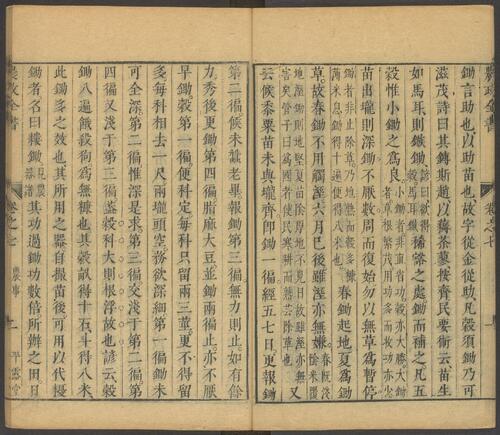 農政全書
卷之七
一
鋤言助也以助苗也故字從金從助凡穀須鋤乃可
滋茂詩曰其鎛斯趙以薅荼蓼按齊民要術云苗生
如馬耳則鏃鋤諺曰欲得穀馬耳鏃稀豁之處鋤而補之凡五
穀惟小鋤之為良小鋤者非直省功穀亦倍勝大鋤者草根繁茂用功多而收功亦少
苗出壠則深鋤不厭數周而復始勿以無草為暫停
鋤者非止除草乃地熟而穀多糠薄米息鋤得十遍便得八米也春鋤起地夏為鋤
草故春鋤不用觸溼六月已後雖溼亦無嫌春既淺陰未覆
地溼鋤則地堅夏苗陰厚地不見日故雖溼亦無害矣管子曰為國者使民寒耕而熱芸除草也又
云候黍粟苗未與壠齊即鋤一徧經五七日更報鋤
第二徧候未蠶老畢報鋤第三徧無力則止如有餘
力秀後更鋤第四徧脂麻大豆並鋤兩徧止亦不厭
旱鋤穀第一徧便科定每科只留兩三莖更不得留
多每科相去一尺兩壠頭空務欲深細第一徧鋤未
可全深第二徧惟深是求第三徧交淺于第二徧第
四徧又淺于第三徧蓋穀科大則根浮故也諺云穀
鋤八遍餓殺狗為無糠也其穀畝得十石斗得八米
此鋤多之效也其所用之器自撮苗後可用以代耰
鋤者名曰耬鋤見農器譜其功過鋤功數倍所辦之田日
農政全書
卷之七
農事
二
平露堂